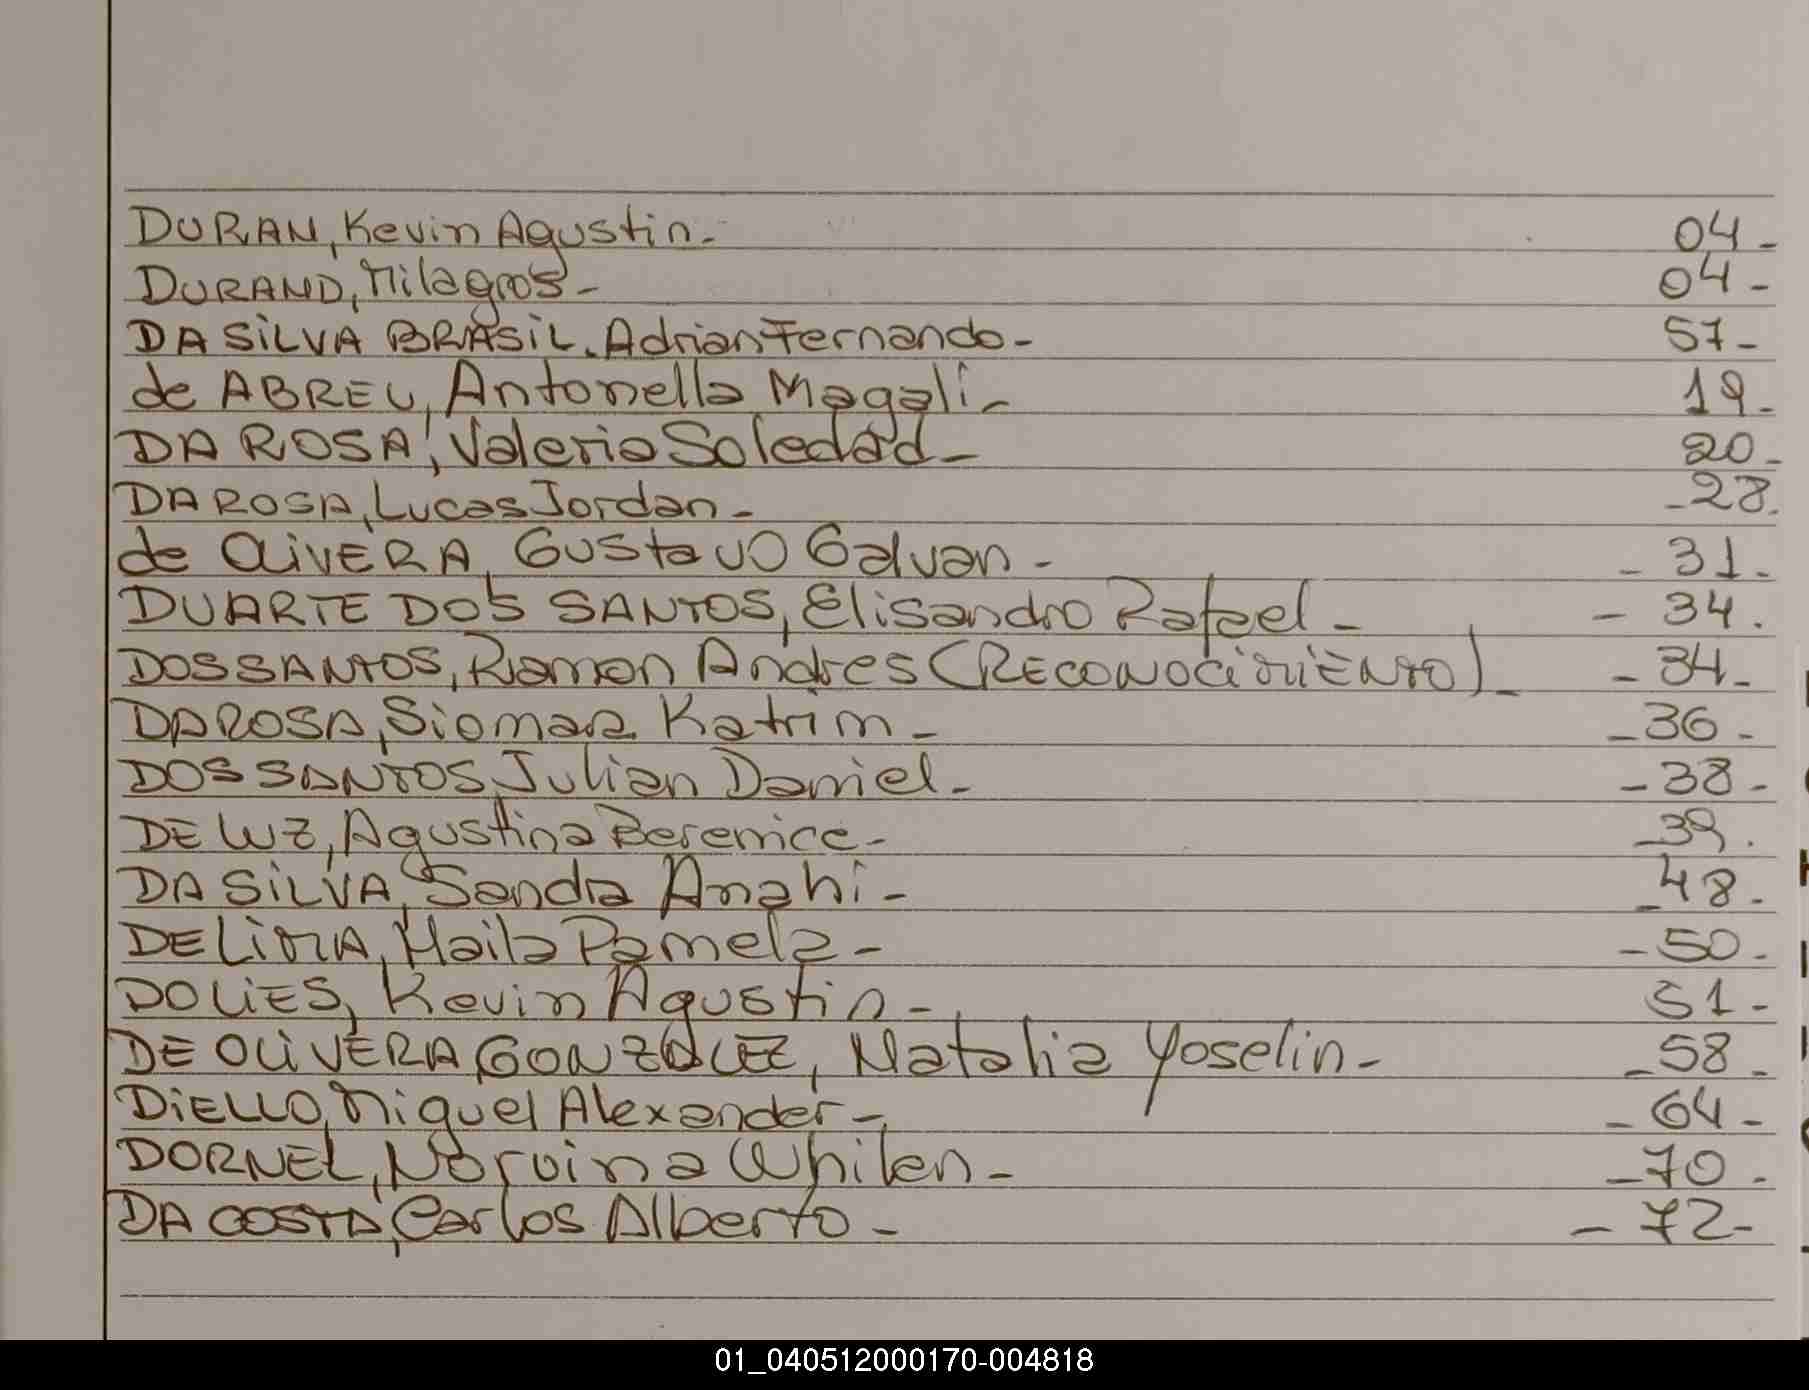 DURAN, Kevin Agustin.- 04 -
DURAND, Milagros - 04 -
DA SiLVA BRASiL. Adrian Fernando - 57 -
de ABREU, Antonella Magali - 19 -
DA ROSA, Valeria Soledad - 20 -
DA ROSA, Lucas Jordan - - 28.
de OLiVERA, Gustavo Galvan - - 31 -
DUARTE DOS SANTOS, Elisandro Rafael - - 34.
DOS SANTOS, Ramon Andres (RECONOCiMiENTO) - - 34 -
DA ROSA, Siomara Katrim - - 36 -
DOS SANTOS, Julian Daniel - - 38 -
DE LUZ, Agustina Berenice - - 39.
DA SiLVA, Sandra Anahi - - 48 -
DE LiMA, Maila Pamela - - 50 -
DOLiES, Kevin Agustin - 51 -
DE OLiVERA GONZALEZ, Natalia Yoselin - - 58 -
DiELLO, Miguel Alexander - - 64 -
DORNEL, Norvina Whilen - - 70 -
DA COSTA, Carlos Alberto - - 72 -
01_040512000170-004818